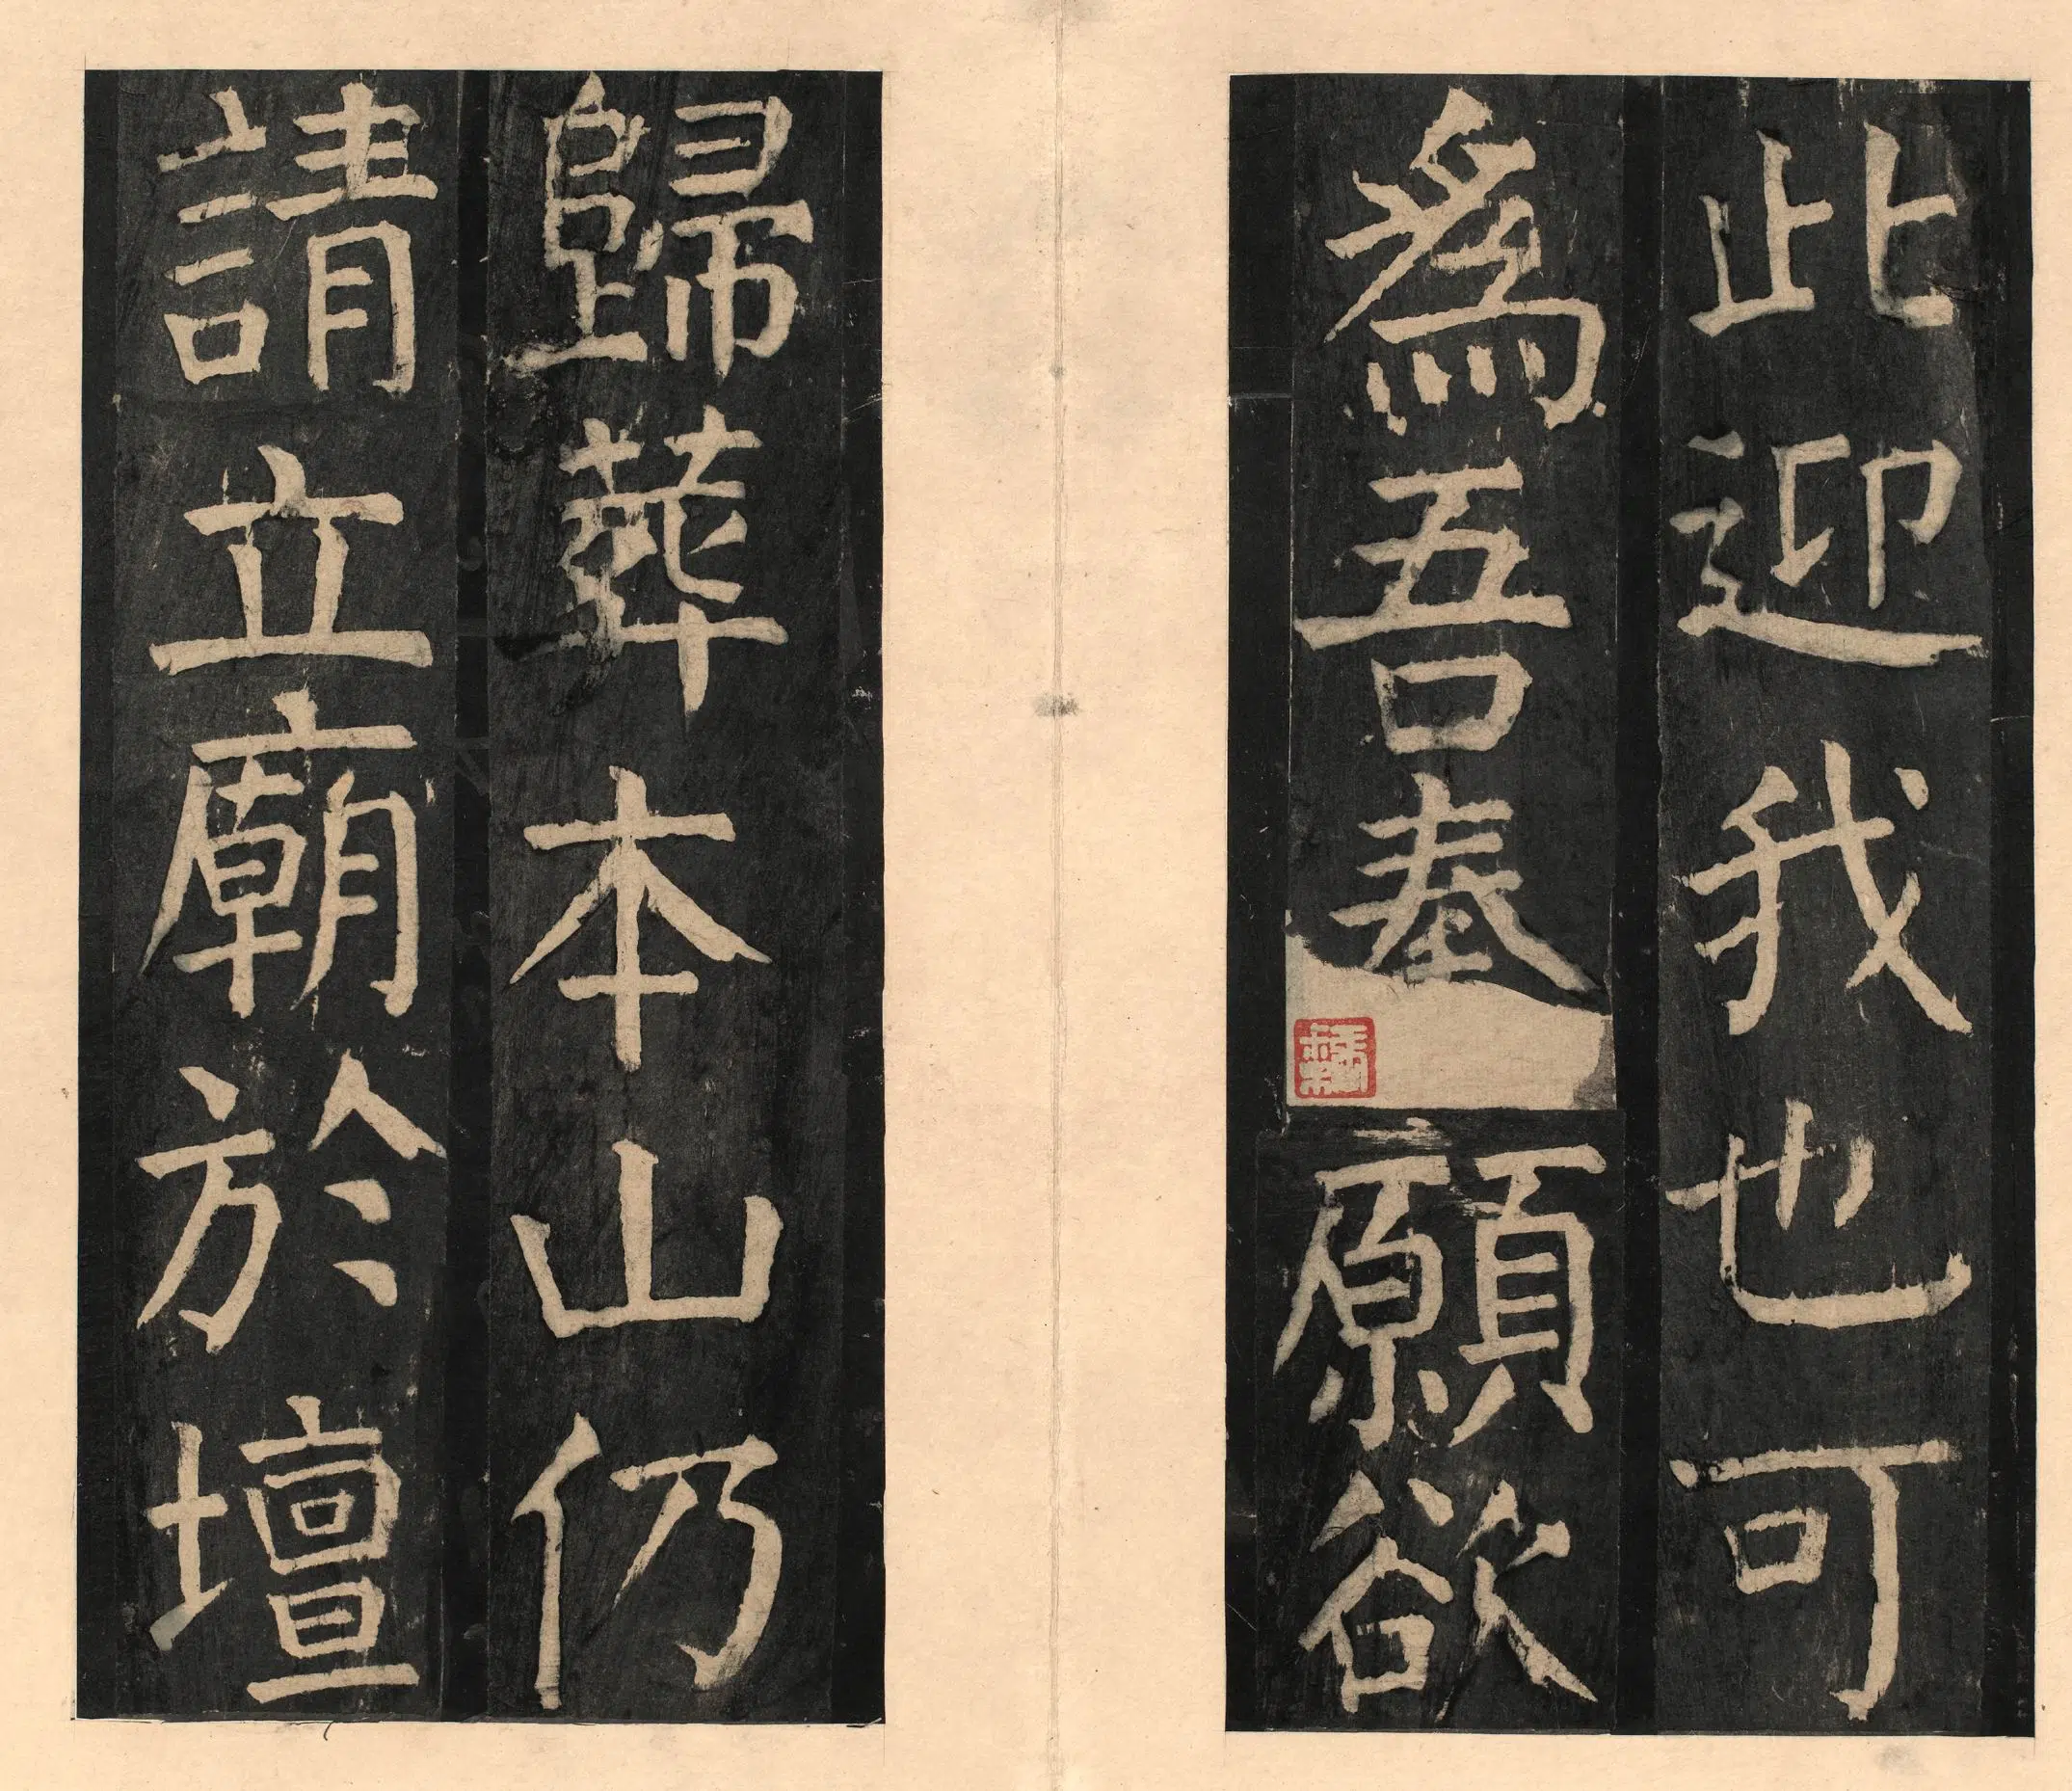 此迎我也可
爲吾奏願欲
歸葬本山仍
請立廟於壇